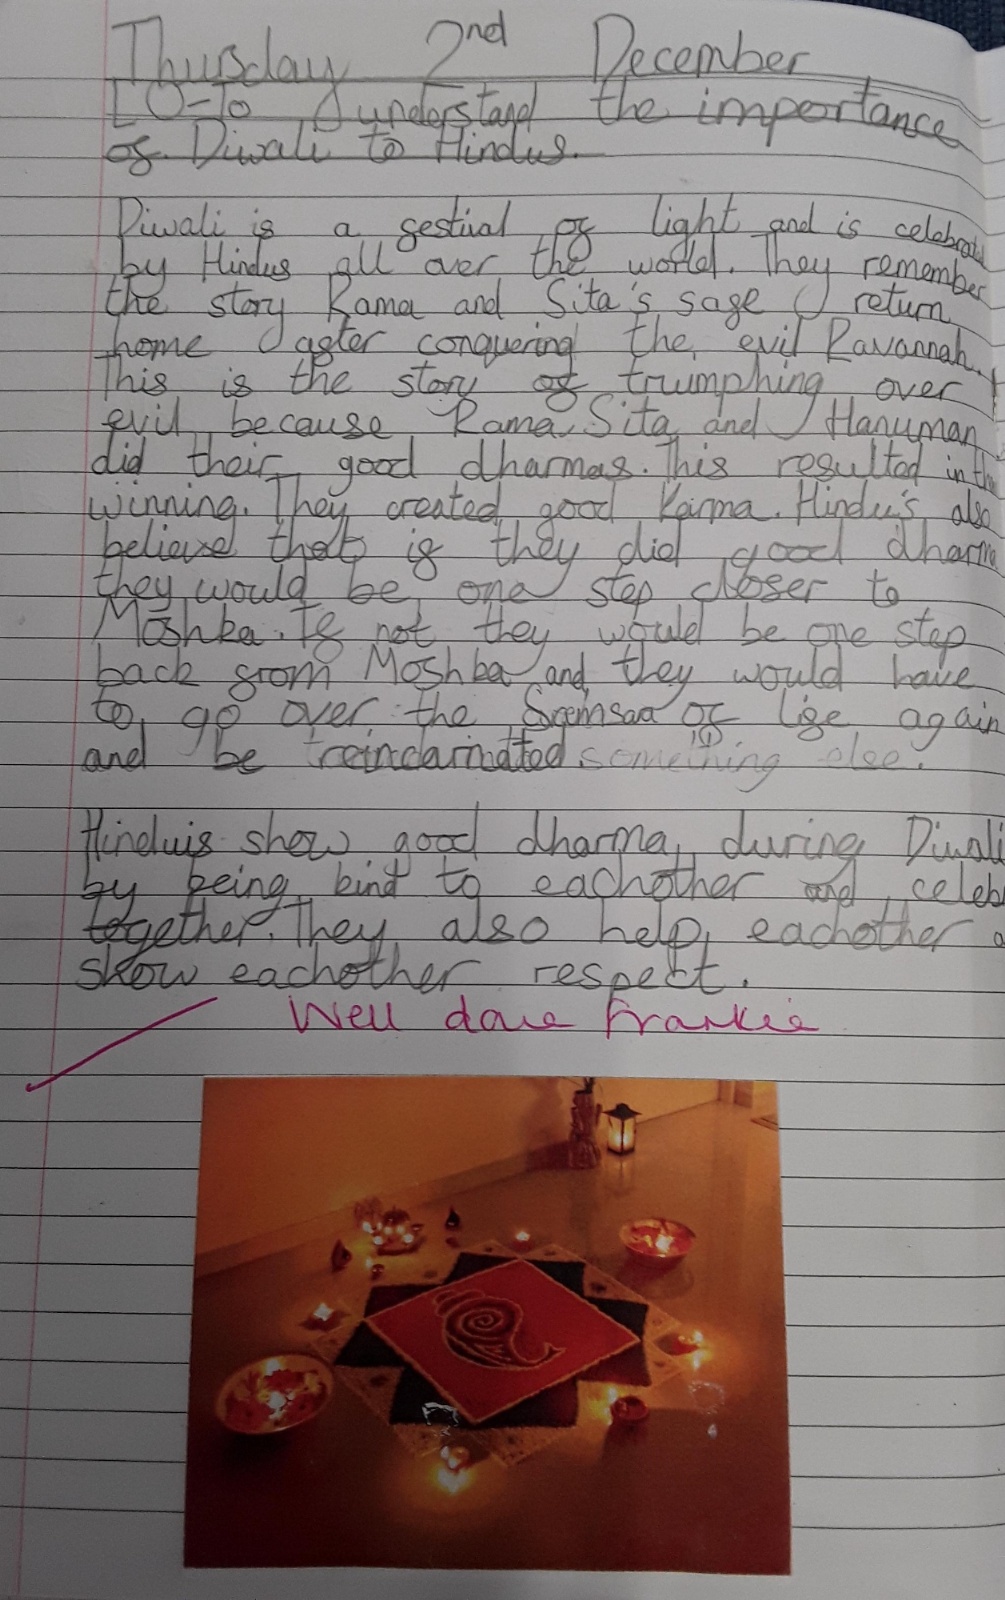 Thursday 2nd December
LO-To understand the importance
of Diwali to Hindus.
Diwali is a festival of light and is celebrat
by Hindus all over the world. They remember
the story Rama and Sita's safe return
home after conquering the evil Ravannah.
This is the story of trumphing over
evil because Rama, Sita and Hanuman
did their good dharmas. This resulted in
winning. They created good Karma. Hindu's also
believe that if they did good dharma
they would be one step closer to
Moshka. If not they would be one step
back from Moshka and they would have
to go over the of life again
and be reincarnated something else.
Hinduis show good dharma, during Diwali
by being kind to eachother and celeb
together. They also help eachother a
show eachother respect.
Well done Frankie